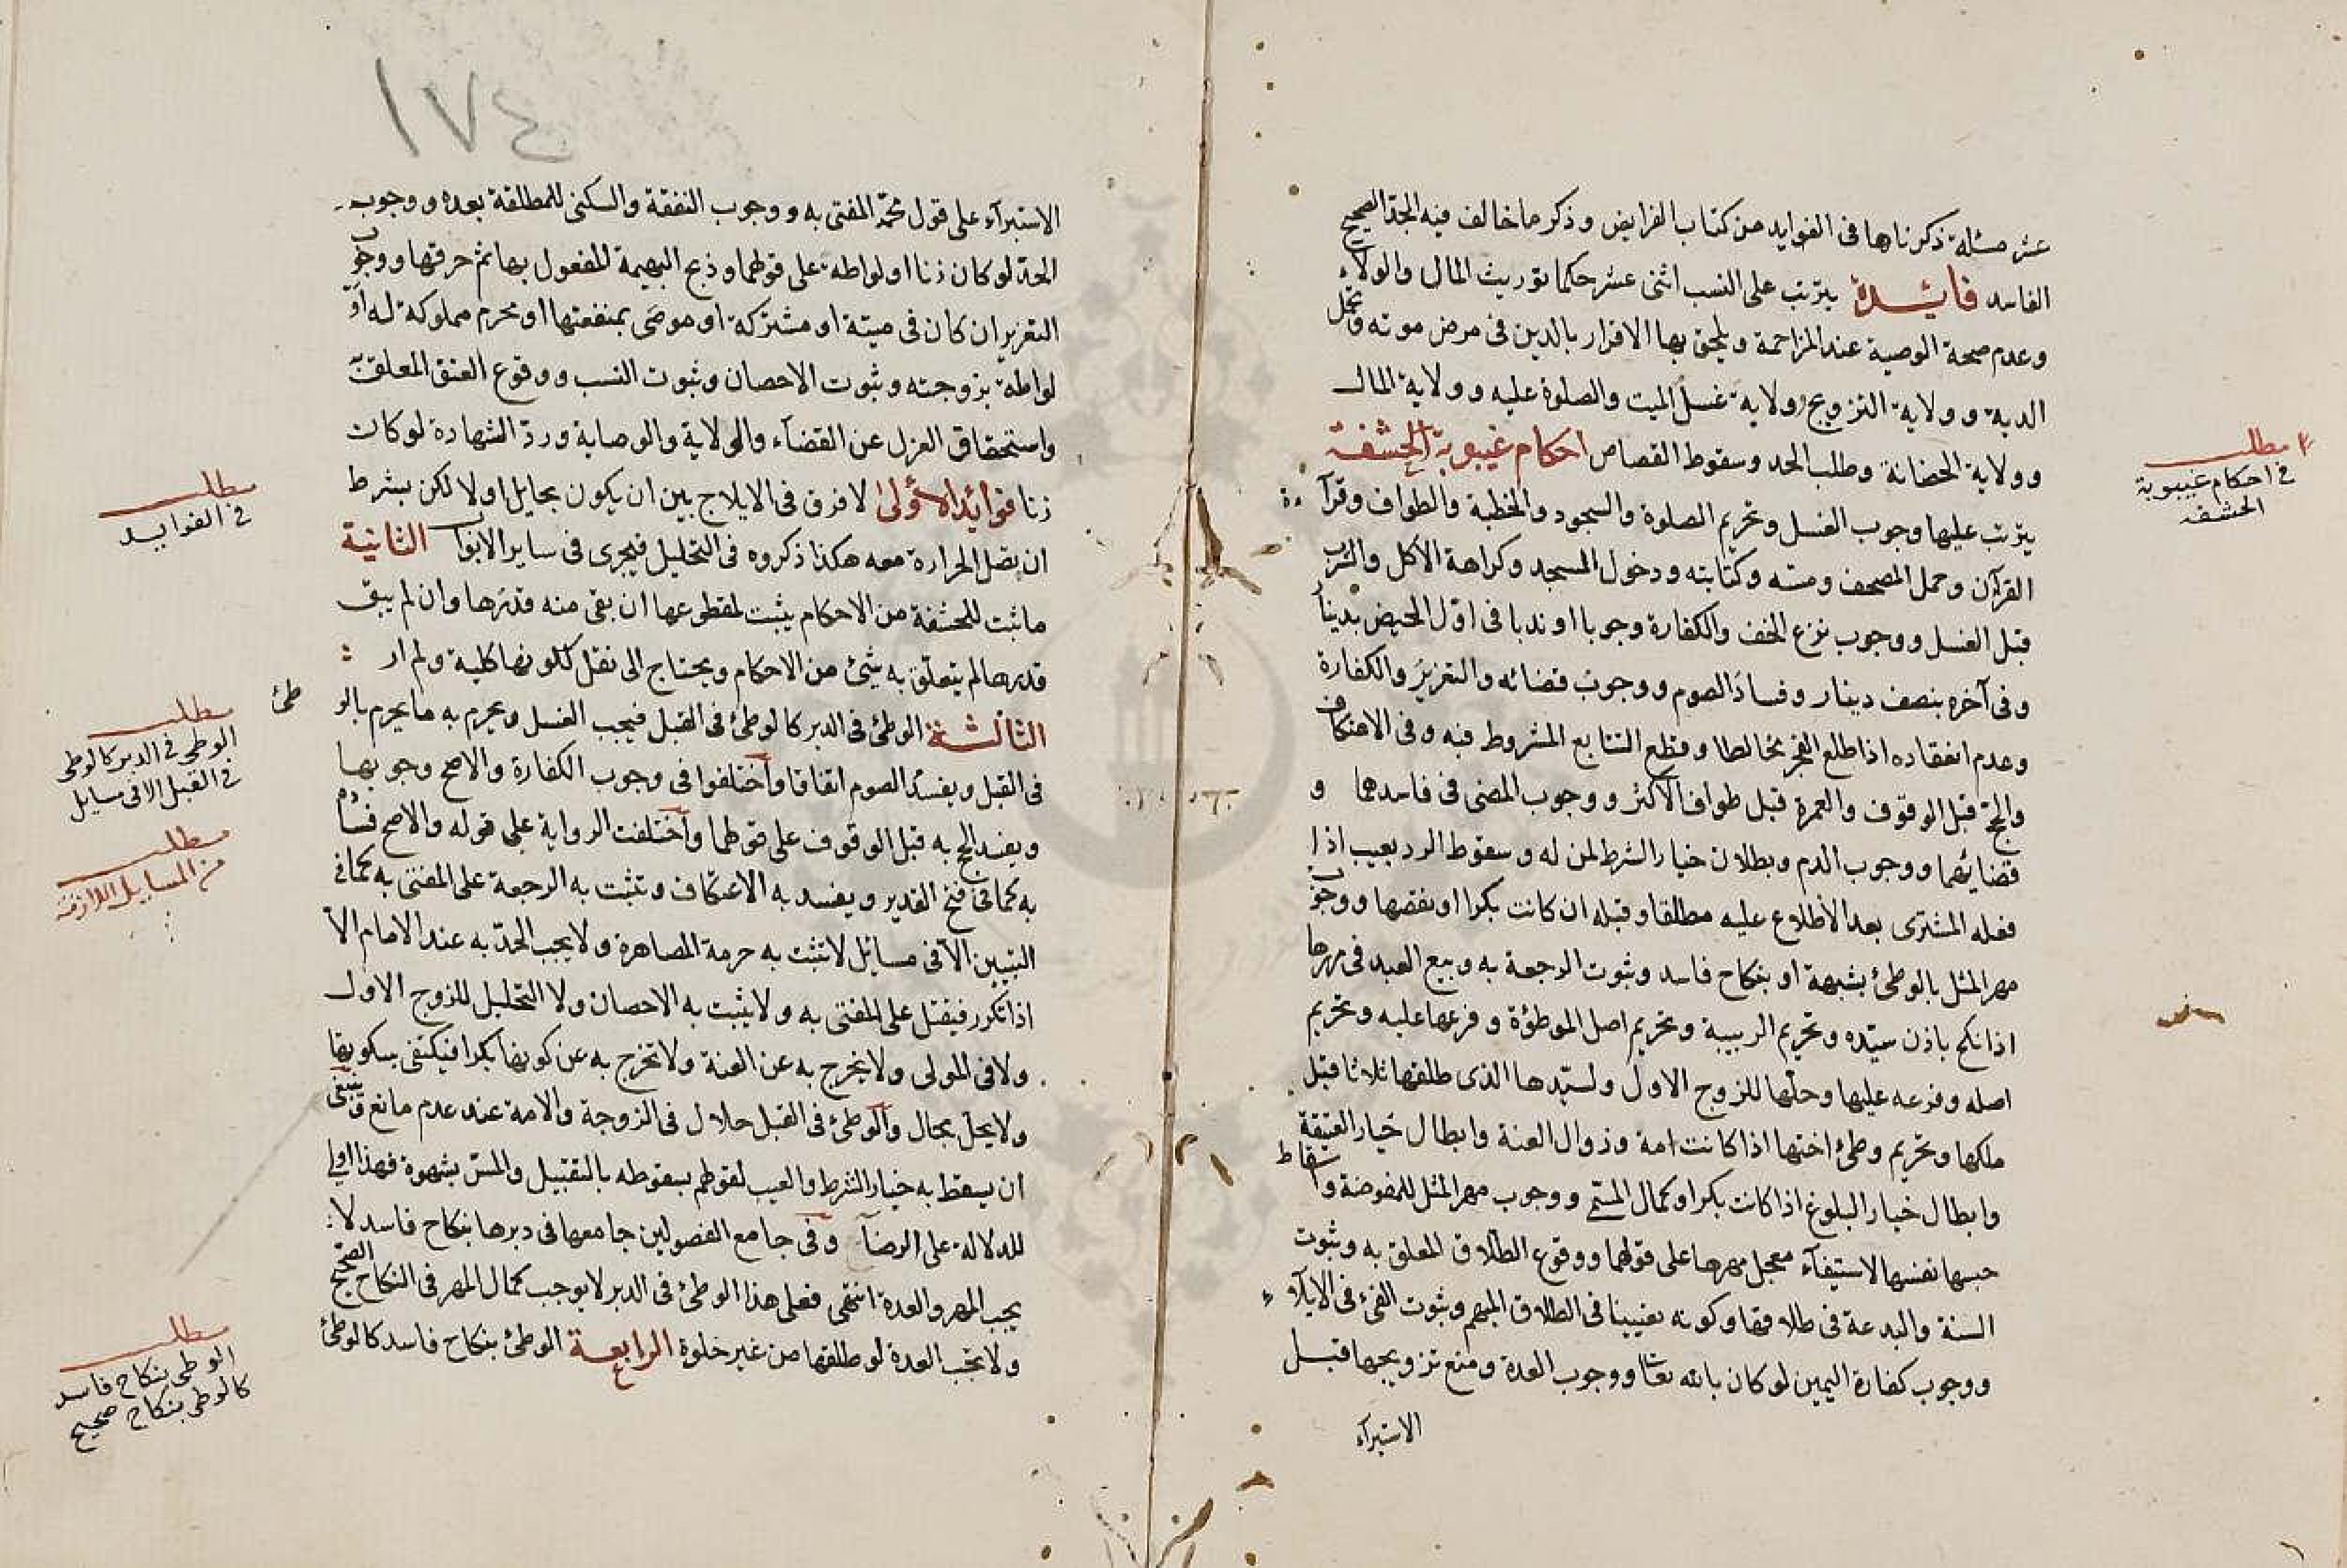 عشر مسئلة ذكرناها فى الفوايد من كتاب الفرايض وذكر ما خالف فيه الجد الصحيح
الفاسد فائدة يترتب على النسب اثنى عشر حكما توريث المال والولاء
وعدم صحة الوصية عند المزاحمة ويلحق بها الاقرار بالدين فى مرض موته وتحمل
الدية وولاية التزويج وولاية غسل الميت والصلوة عليه وولاية المال
وولاية الحضانة وطلب الحد وسقوط القصاص احكام غيبوبة الحشفة
يترتب عليها وجوب الغسل وتحريم الصلوة والسجود والخطبة والطواف وقرآءة
القرآن وحمل المصحف ومسه وكتابته ودخول المسجد وكراهة الاكل والشرب
قبل الغسل ووجوب نزع الخف والكفارة وجوبا او ندبا فى اول الحيض بدينار
وفى آخره بنصف دينار وفساد الصوم ووجوب قضائه والتعزير والكفارة
وعدم انعقاده اذا طلع الفجر مخالطا وقطع التتابع المشروط فيه وفى الاعتكاف
والحج قبل الوقوف والعمرة قبل طواف الاكثر ووجوب المضى فى فاسدهما و
قضائهما ووجوب الدم وبطلان خيار الشرط لمن له وسقوط الرد بعيب اذا
فعله المشترى بعد الاطلاع عليه مطلقا وقبله ان كانت بكرا او نقصها ووجوب
مهر المثل بالوطئ بشبهة او بنكاح فاسد وثبوت الرجعة به وبيع العبد فى مهرها
اذا نكح باذن سيده وتحريم الربيبة وتحريم اصل الموطؤة وفرعها عليه وتحريم
اصله وفرعه عليها وحلها للزوج الاول ولسيدها الذى طلقها ثلاثا قبل
ملكها وتحريم وطئ اختها اذا كانت امة وزوال العنة وابطال خيار العتيقة
وابطال خيار البلوغ اذا كانت بكرا وكمال المسمى ووجوب مهر المثل للمفوضة واسقاط
حبسها نفسها لاستيفآء معجل مهرها على قولهما ووقوع الطلاق المعلق به وثبوت
السنة والبدعة فى طلاقها وكونه تعيينا فى الطلاق المبهم وثبوت الفئ فى الايلآء
ووجوب كفارة اليمين لو كان بالله تعا ووجوب العدة ومنع تزويجها قبل
الاستبرآء
مطلب
فى احكام غيبوبة
الحشفه
٤٧١
الاستبرآء على قول محمد المفتى به ووجوب النفقة والسكنى للمطلقة بعده ووجوب
الحد لو كان زنا او لواطة على قولهما وذبح البهيمة المفعول بها ثم حرقها ووجوب
التعزير ان كان فى ميتة او مشتركة او موصى بمنفعتها او محرم مملوكة له او
لواطة بزوجته وثبوت الاحصان وثبوت النسب ووقوع العتق المعلق به
واستحقاق العزل عن القضآء والولاية والوصاية ورد الشهادة لو كان
زنا فوائد الاولى لا فرق فى الايلاج بين ان يكون بحايل اولا لكن بشرط
ان تصل الحرارة معه هكذا ذكروه فى التحليل فيجرى فى ساير الابواب الثانية
ما ثبت للحشفة من الاحكام يثبت لمقطوعها ان بقى منه قدرها وان لم يبق
قدرها لم يتعلق به شئ من الاحكام ويحتاج الى نقل لكونها كلية ولم ار
الثالثة الوطئ فى الدبر كالوطئ فى القبل فيجب الغسل ويحرم به ما يحرم بالوطئ
فى القبل ويفسد الصوم اتفاقا واختلفوا فى وجوب الكفارة والاصح وجوبها
ويفسد الحج به قبل الوقوف على قولهما واختلفت الرواية على قوله والاصح فساده
به كما فى فتح القدير ويفسد به الاعتكاف وتثبت به الرجعة على المفتى به كما فى
التبيين الا فى مسائل لا تثبت به حرمة المصاهرة ولا يجب الحد به عند الامام الا
اذا تكرر فيقتل على المفتى به ولا يثبت به الاحصان ولا التحليل للزوج الاول
ولا فئ المولى ولا يخرج به عن العنة ولا تخرج به عن كونها بكرا فيكتفى بسكوتها
ولا يحل بحال والوطئ فى القبل حلال فى الزوجة والامة عند عدم مانع وينبغى
ان يسقط به خيار الشرط والعيب لقولهم بسقوطه بالتقبيل والمس بشهوة فهذا اولى
للدلالة على الرضآ وفى جامع الفصولين جامعها فى دبرها بنكاح فاسد لا
يجب المهر والعدة انتهى فعلى هذا الوطئ فى الدبر لا يوجب كمال المهر فى النكاح الصحيح
ولا تجب العدة لو طلقها من غير خلوة الرابعة الوطئ بنكاح فاسد كالوطئ
مطلب
فى الفوايد
مطلب
الوطى فى الدبر كالوطى
فى القبل الا فى مسايل
مطلب
من المسايل
مطلب
الوطى بنكاح فاسد
كالوطى بنكاح صحيح